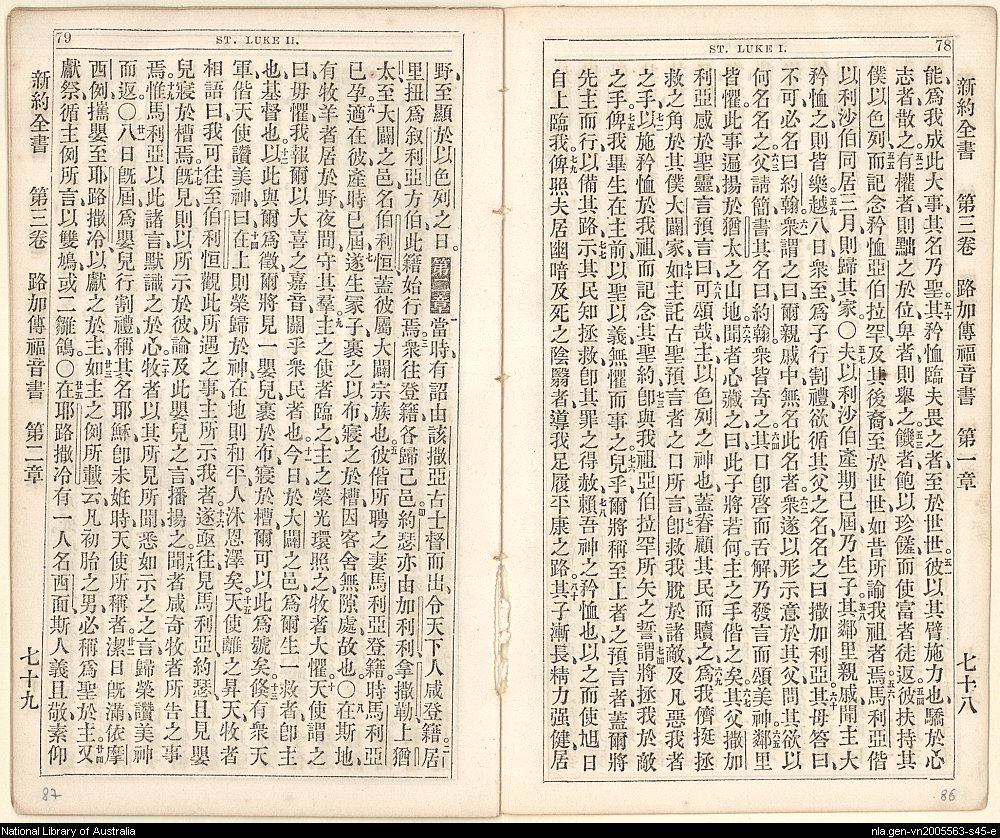 78
ST. LUKE I.
新約全書 第三卷 路加傳福音書 第一章 七十八
能、爲我成此大事、其名乃聖、其矜恤臨夫畏之者、至於世世、彼以其臂施力也、驕於心
志者散之、有權者則黜之於位、卑者則舉之、饑者飽以珍饈、而使富者徒返、彼扶持其
僕以色列、而記念矜恤亞伯拉罕、及其後裔、至於世世、如昔所諭我祖者焉、馬利亞偕
以利沙伯同居三月、則歸其家〇夫以利沙伯產期已屆、乃生子、其鄰里親戚聞主大
矜恤之、則皆樂、越八日、衆至爲子行割禮、欲循其父之名名之曰撒加利亞、其母答曰、
不可、必名曰約翰、衆謂之曰、爾親戚中無名此名者、衆遂以形示意於其父、問其欲以
何名名之、父請簡書其名曰約翰、衆皆奇之、其口卽啓而舌解、乃發言而頌美神、鄰里
皆懼、此事遍揚於猶太之山地、聞者心藏之曰、此子將若何、主之手偕之矣、其父撒加
利亞感於聖靈、言預言曰、可頌哉、主以色列之神也、蓋眷顧其民而贖之、爲我儕挺拯
救之角、於其僕大闢家、如主託古聖預言者之口所言、卽救我脫於諸敵、及凡惡我者
之手、以施矜恤於我祖、而記念其聖約、卽與我祖亞伯拉罕所矢之誓、謂將拯我於敵
之手、俾我畢生在主前、以聖以義、無懼而事之、兒乎、爾將稱至上者之預言者、蓋爾將
先主而行、以備其路、示其民知拯救、卽其罪之得赦、賴吾神之矜恤也、以之而使旭日
自上臨我、俾照夫居幽暗及死之陰翳者、導我足履平康之路、其子漸長、精力强健、居
86
79
ST. LUKE II.
野、至顯於以色列之日。第二章 當時有詔由該撒亞古士督而出、令天下人咸登籍、居
里扭爲叙利亞方伯、此籍始行焉、衆往登籍、各歸己邑、約瑟亦由加利利拿撒勒上猶
太、至大闢之邑、名伯利恒、蓋彼屬大闢宗族也、彼偕所聘之妻馬利亞登籍、時馬利亞
已孕、適在彼產時已屆、遂生冢子、裹之以布、寢之於槽、因客舍無隙處故也〇在斯地、
有牧羊者居於野、夜間守其羣、主之使者臨之、主之榮光環照之、牧者大懼、天使謂之
曰、毋懼、我報爾以大喜之嘉音、關乎衆民者也、今日於大闢之邑、爲爾生一救者、卽主
也、基督也、以此與爾爲徵、爾將見一嬰兒裹於布、寢於槽、爾可以此爲號矣、倏有衆天
軍偕天使讚美神曰、在上則榮歸於神、在地則和平、人沐恩澤矣、天使離之昇天、牧者
相語曰、我可往至伯利恒、觀此所遇之事、主所示我者、遂亟往見馬利亞約瑟、且見嬰
兒寢於槽焉、旣見、則以所示於彼論及此嬰兒之言播揚之、聞者咸奇牧者所告之事
焉、惟馬利亞以此諸言默識之於心、牧者以其所見所聞、悉如示之之言、歸榮讚美神
而返〇八日旣屆、爲嬰兒行割禮、稱其名耶穌、卽未姙時、天使所稱者、潔日旣滿、依摩
西例、攜嬰至耶路撒冷以獻之於主、如主之例所載云、凡初胎之男、必稱爲聖於主、又
獻祭循主例所言、以雙鳩、或二雛鴿〇在耶路撒冷有一人名西面、斯人義且敬、素仰
新約全書 第三卷 路加傳福音書 第二章 七十九
87
National Library of Australia
nla.gen-vn2005563-s45-e